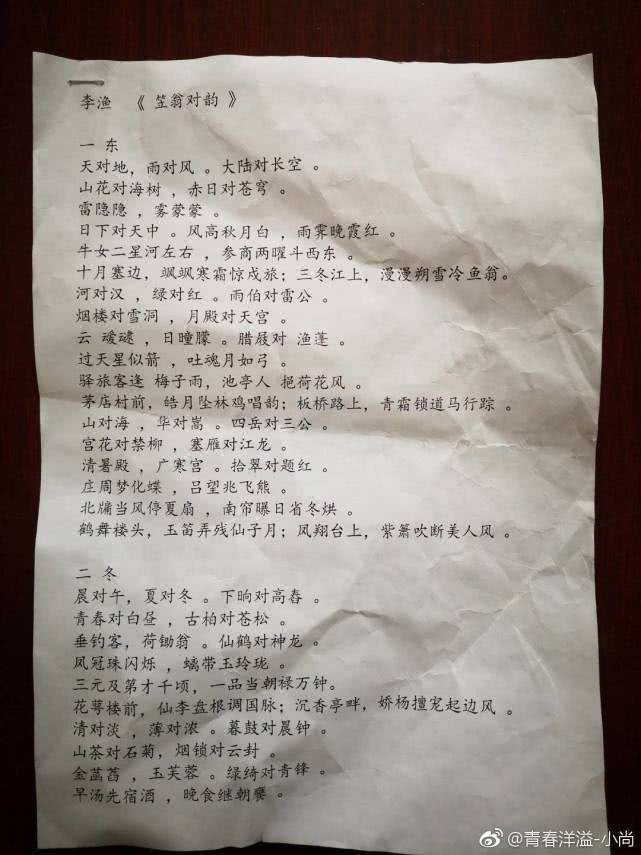 李渔 《 笠翁对韵 》
一 东
天对地，雨对风 。大陆对长空 。
山花对海树 ，赤日对苍穹 。
雷隐隐 ，雾蒙蒙 。
日下对天中 。风高秋月白 ，雨霁晚霞红 。
牛女二星河左右 ，参商两曜斗西东 。
十月塞边，飒飒寒霜惊戍旅；三冬江上，漫漫朔雪冷鱼翁。
河对汉 ，绿对红 。雨伯对雷公 。
烟楼对雪洞 ，月殿对天宫 。
云 叆叇 ，日曈朦 。腊屐对 渔蓬 。
过天星似箭 ，吐魂月如弓 。
驿旅客逢 梅子雨，池亭人 挹荷花风 。
茅店村前，皓月坠林鸡唱韵；板桥路上，青霜锁道马行踪 。
山对海 ，华对嵩 。四岳对三公 。
宫花对禁柳 ，塞雁对江龙 。
清暑殿 ，广寒宫 。拾翠对题红 。
庄周梦化蝶 ，吕望兆飞熊 。
北牖当风停夏扇 ，南帘曝日省冬烘 。
鹤舞楼头，玉笛弄残仙子月；凤翔台上，紫箫吹断美人风 。
二 冬
晨对午，夏对冬 。下晌对高舂 。
青春对白昼 ，古柏对苍松 。
垂钓客，荷锄翁 。仙鹤对神龙 。
凤冠珠闪烁 ，螭带玉玲珑 。
三元及第才千顷，一品当朝禄万钟。
花萼楼前，仙李盘根调国脉；沉香亭畔，娇杨擅宠起边风 。
清对淡 ，薄对浓 。暮鼓对晨钟 。
山茶对石菊，烟锁对云封 。
金菡萏 ，玉芙蓉 。绿绮对青锋 。
早汤先宿酒 ，晚食继朝饔 。
@青春洋溢-小尚